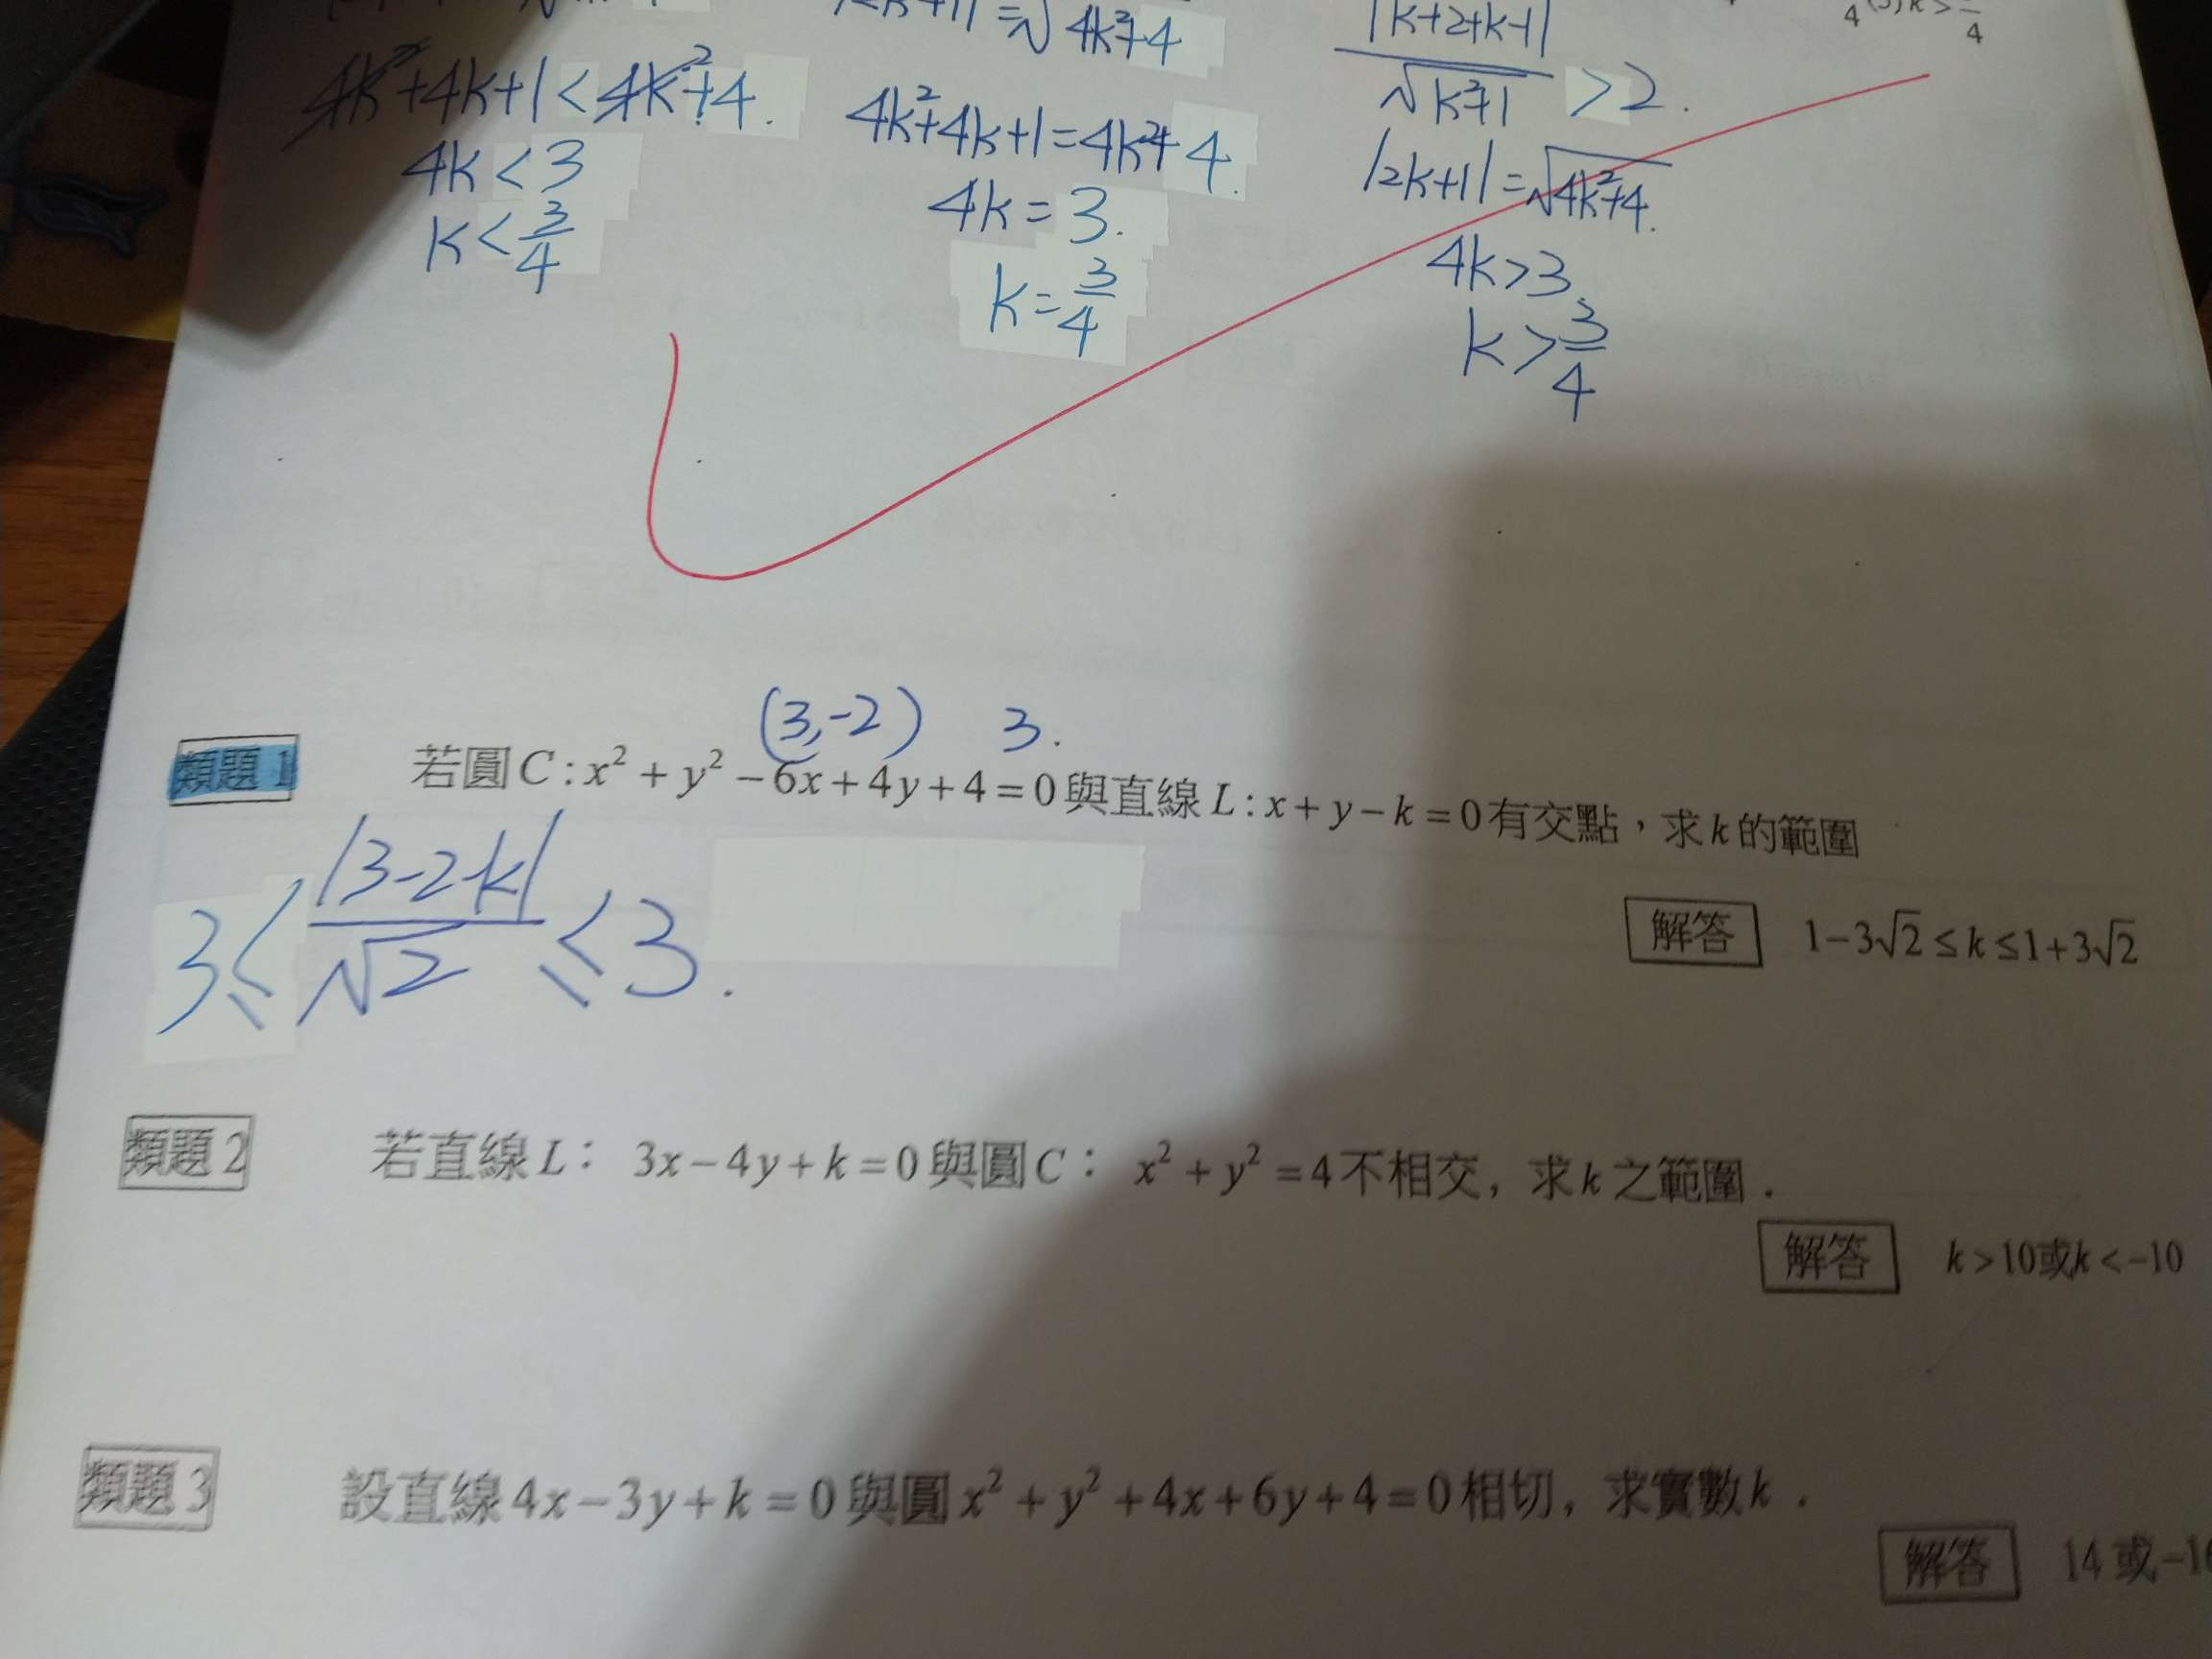 |2k+1| = √4k²+4
|k+2+k-1|
√k²+1 > 2.
4k²+4k+1 < 4k²+4.
4k < 3
k < 3/4
4k²+4k+1 = 4k²+4.
4k = 3.
k = 3/4
|2k+1| = √4k²+4.
4k > 3
k > 3/4
(3,-2) 3.
類題 1 若圓 C : x² + y² − 6x + 4y + 4 = 0 與直線 L : x + y − k = 0 有交點，求 k 的範圍
3 ≤ |3-2-k|/√2 ≤ 3.
解答 1−3√2 ≤ k ≤ 1+3√2
類題 2 若直線 L： 3x − 4y + k = 0 與圓 C： x² + y² = 4 不相交, 求 k 之範圍.
解答 k > 10或k < −10
類題 3 設直線 4x − 3y + k = 0 與圓 x² + y² + 4x + 6y + 4 = 0 相切, 求實數 k .
解答 14 或